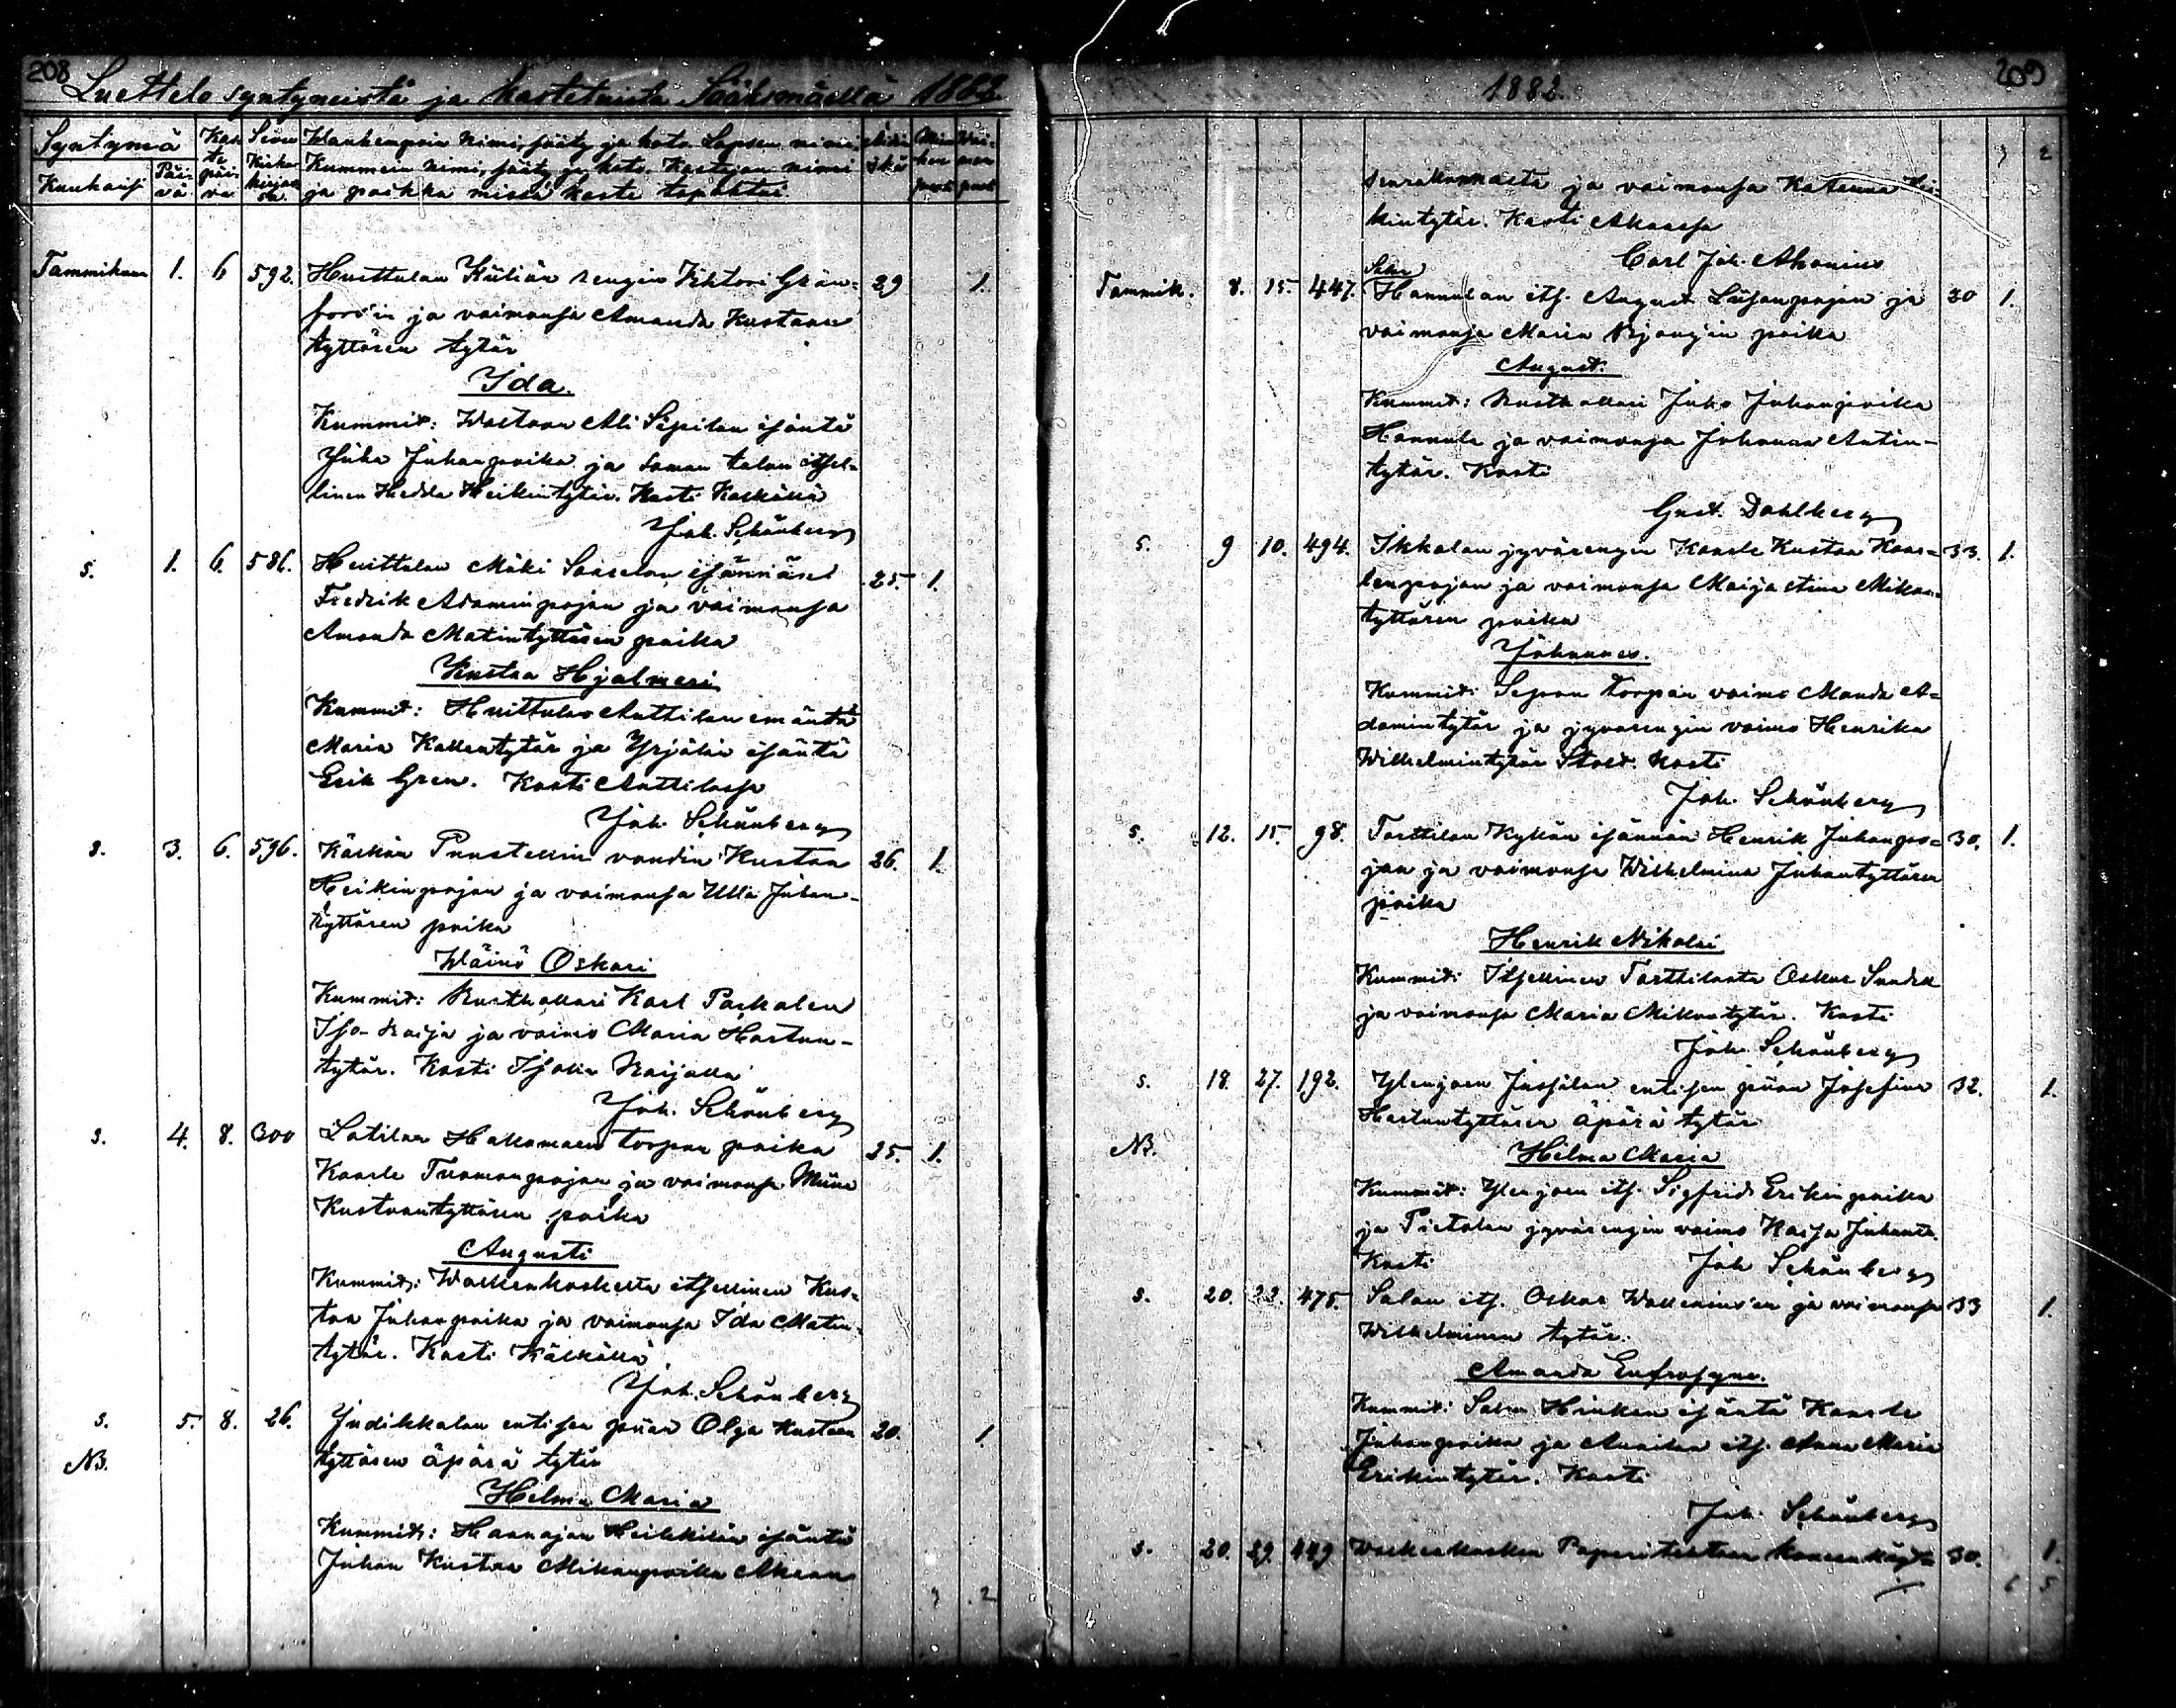 208
Luettelo syntyneistä ja kastetuista Sääksmäellä 1882
Syntymä
Kuukausi
Päivä
Wanhempain nimi, sääty ja koto. Lapsen nimi
Kummein nimi, sääty ja koto. Kastajan nimi
ja paikka missä kaste tapahtui.
Tammikuu 1. 6 592. Huittulan Küliän rengin Viktori Grän= 29 1.
fors'in ja vaimonsa Amanda Kustaan
tyttären tytär
Ida.
Kummit: Ali Sipilan isäntä
Juha Juhanpoika ja saman talon itsel-
linen Hedda Heikintytär. Kasti Kälkällä
Joh. Schönberg
s. 1. 6. 586. Huittulan Mäki Saarelan isännän 25 1.
Fredrik Adaminpojan ja vaimonsa
Amanda Matintyttären poika
Kustaa Hjalmari
Kummit: Huittulan Anttilan emäntä
Maria Kallentytär ja Yrjölän isäntä
Erik Gren. Kasti Anttilassa
Joh. Schönberg
s. 3. 6. 596. Kälkän Puustellin voudin Kustaa 26. 1.
Heikinpojan ja vaimonsa Ulla Juhan-
tyttären poika
Wäinö Oskari
Kummit: Rusthollari Karl Paskalen
Iso-Raija ja vaimo Maria Hartun-
tytär. Kasti Isolla Raijalla
Joh. Schönberg
s. 4. 8. 300 Lotilan Hakamaen torpan poika 25. 1.
Kaarle Tuomanpojan ja vaimonsa Miina
Kustaantyttären poika
Augusti
Kummit: Walkeakoskelta itsellinen Kus=
taa Juhanpoika ja vaimonsa Ida Matin-
tytär. Kasti Kälkällä
Joh. Schönberg
s. 5. 8. 26. Jndikkalan entisen piian Olga Kustaan 20. 1.
NB. tyttären äpärä tytär
Helma Maria
Kummit: Hannajan Heikkilän isäntä
Juhan Kustaa Mikanpoika Akaan
3 2
1882.
209
3 2
seurakunnasta ja vaimonsa Katariina Hei-
kintytär. Kasti Akaassa
Carl Joh. Ahonius
Tammik. 8. 15. 447. Hannulan its. August Liisanpojan ja 30 1.
vaimonsa Maria poika
August.
Kummit: Rusthollari Juho Juhanpoika
Hannula ja vaimonsa Johanna Antin-
tytär. Kasti
Gust. Dahlberg
s. 9 10. 494. Ikkalan jyvärengin Kaarle Kustaa Kaar= 33. 1.
lenpojan ja vaimonsa Maija Stina Mikan=
tyttären poika
Johannes.
Kummit: Sepän torpan vaimo Manda A=
damintytär ja jyvärengin vaimo Henrika
Wilhelmintytär Kasti
Joh. Schönberg
s. 12. 15. 98. Tarttilan Kylkän isännän Henrik Juhanpo= 30. 1.
jan ja vaimonsa Wilhelmina Juhantyttären
poika
Henrik Nikolai
Kummit: Itsellinen Tarttilasta Oskar Sundell
ja vaimonsa Maria Mikontytär. Kasti
Joh. Schönberg
s. 18. 27. 192. Ylenjoen Jussilan entisen piian Josefina 32. 1.
Hartuntyttären äpärä tytär
NB. Hilma Maria
Kummit: Ylenjoen its. Sigfrid Erikinpoika
ja Pietolan jyvärengin vaimo Kaisa Juhant.
Kasti Joh Schönberg
s. 20. 22. 475. Salan its. Oskar Walleniuksen ja vaimonsa 33 1.
Wilhelminan tytär.
Amanda Eufrosyne.
Kummit: Salon Hinkan isäntä Kaarle
Juhanpoika ja its. Anna Maria
Erikintytär. Kasti
Joh. Schönberg
s. 20. 29. 449 Walkeakosken Paperitehtaan koneenkäyt= 30. 1.
6 5